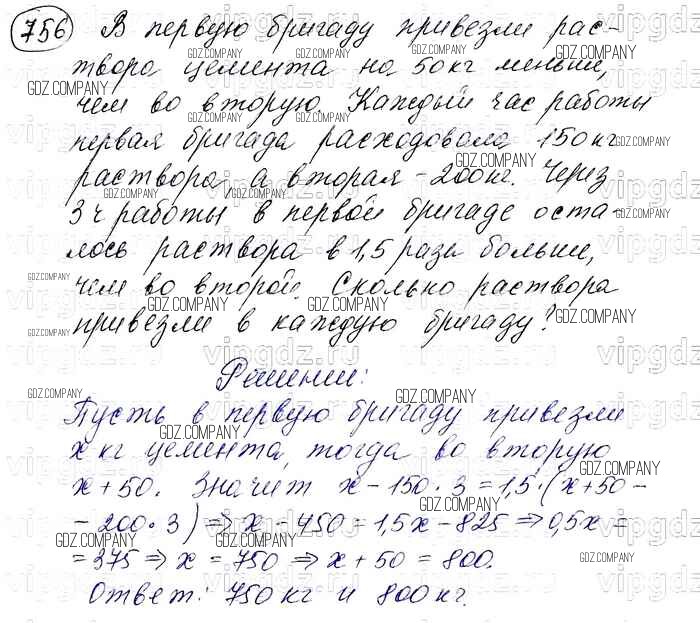 756 В первую бригаду привезли рас-
твора цемента на 50 кг меньше,
чем во вторую. Каждый час работы
первая бригада расходовала 150 кг
раствора, а вторая - 200 кг. Через
3 ч работы в первой бригаде оста-
лось раствора в 1,5 раза больше,
чем во второй. Сколько раствора
привезли в каждую бригаду?
Решение:
Пусть в первую бригаду привезли
x кг цемента, тогда во вторую
x + 50. Значит x - 150 · 3 = 1,5 · (x + 50 -
- 200 · 3) ⇒ x - 450 = 1,5x - 825 ⇒ 0,5x =
= 375 ⇒ x = 750 ⇒ x + 50 = 800.
Ответ: 750 кг и 800 кг.